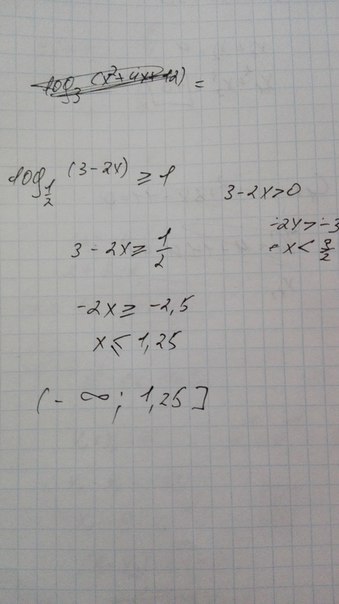 log₃ (x²+4x+12) =
log_{1/2} (3-2x) ≥ 1
3-2x>0
-2x>-3
x < 3/2
3-2x ≥ 1/2
-2x ≥ -2,5
x ≤ 1,25
(-∞; 1,25]